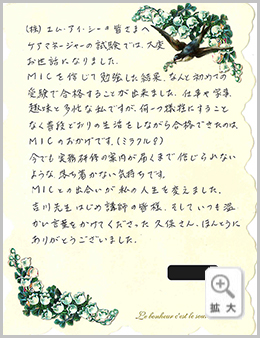 (株)エム・アイ・シーの皆さまへ
ケアマネージャーの試験では、大変
お世話になりました。
MICを信じて勉強した結果、なんと初めての
受験で合格することが出来ました。仕事や家事、
趣味と多忙な私ですが、何一つ犠牲にすること
なく普段どおりの生活をしながら合格できたのは、
MICのおかげです。(ミラクル!?)
今でも実務研修の案内が届くまで信じられない
ような、落ち着かない気持ちです。
MICとの出会いが私の人生を変えました。
吉川先生はじめ講師の皆様、そしていつも温
かい言葉をかけてくださった久保さん、ほんとうに
ありがとうございました。
Le bonheur c'est le
拡大